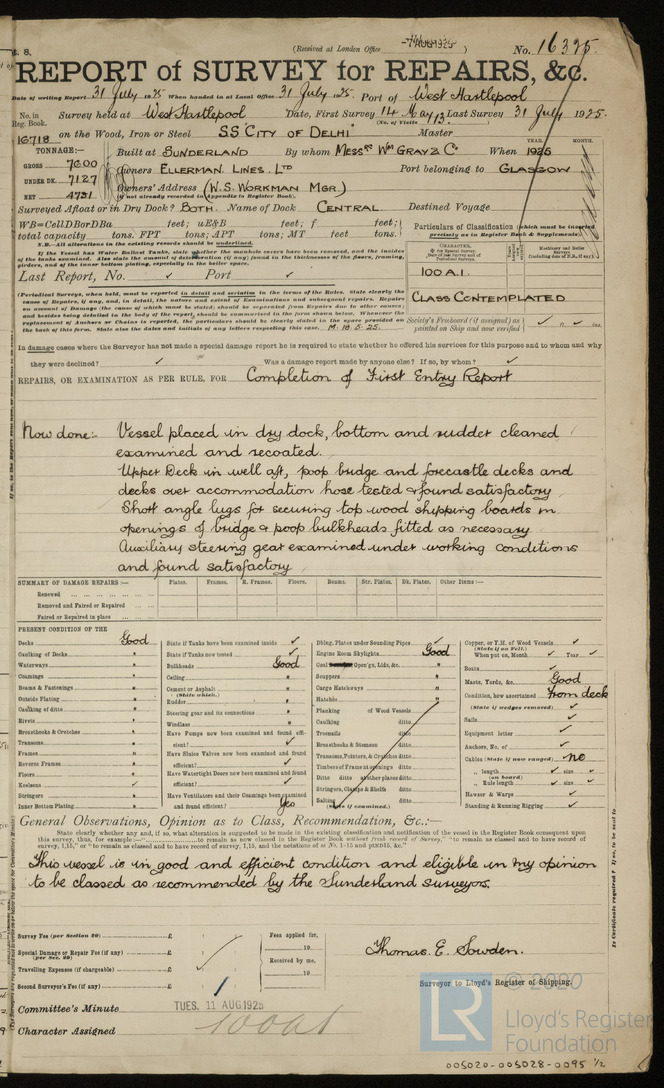 t. 8.
(Received at London Office -7 AUG 1925 )
No. 16395.
REPORT of SURVEY for REPAIRS, &c.
Date of writing Report 31 July 1925 When handed in at Local Office 31 July 1925 Port of West Hartlepool
No. in Reg. Book. Survey held at West Hartlepool Date, First Survey 14 May Last Survey 31 July 1925.
(No. of Visits 13)
16718 on the Wood, Iron or Steel SS "CITY OF DELHI" Master
TONNAGE:— Built at SUNDERLAND By whom MESSRS WM GRAY & CO When YEAR. 1925 MONTH.
GROSS 7600 Owners ELLERMAN LINES. LTD Port belonging to GLASGOW
UNDER DK. 7127 Owners' Address (W.S. WORKMAN MGR.)
(if not already recorded in Appendix to Register Book).
NET 4731
Surveyed Afloat or in Dry Dock? BOTH. Name of Dock CENTRAL Destined Voyage
WB=CellDBorDBa feet; uE&B feet; f feet;
total capacity tons. FPT tons; APT tons; MT feet tons.
Particulars of Classification (which must be given precisely as in Register Book & Supplements).
N.B.—All alterations in the existing records should be underlined.
Last Report, No. ✓ Port ✓
100 A.1.
CLASS CONTEMPLATED
(Periodical Surveys, when held, must be reported in detail and seriatim in the terms of the Rules. State clearly the
cause of Repairs, if any, and, in detail, the nature and extent of Examinations and subsequent repairs. Repairs
on account of Damage (the cause of which must be stated) should be separated from Repairs due to other causes;
and besides being detailed in the body of the report, should be summarised in the form shown below. Whenever the
replacement of Anchors or Chains is reported, the particulars should be clearly stated in the space provided on
the back of this form. State also the dates and initials of any letters respecting this case. M. 18.5.25.
Society's Freeboard (if assigned) as painted on Ship and now verified ✓ ft. ✓ ins.
In damage cases where the Surveyor has not made a special damage report he is required to state whether he offered his services for this purpose and to whom and why
they were declined? ✓ Was a damage report made by anyone else? If so, by whom? ✓
REPAIRS, OR EXAMINATION AS PER RULE, FOR Completion of First Entry Report
Now done:- Vessel placed in dry dock, bottom and rudder cleaned
examined and recoated.
Upper Deck in well aft, poop bridge and forecastle decks and
decks over accommodation hose tested & found satisfactory
Short angle lugs for securing top wood shipping boards in
openings of bridge & poop bulkheads fitted as necessary
Auxiliary steering gear examined under working conditions
and found satisfactory
SUMMARY OF DAMAGE REPAIRS :— Plates. Frames. R. Frames. Floors. Beams. Str. Plates. Dk. Plates. Other Items:—
Renewed
Removed and Faired or Repaired
Faired or Repaired in place
PRESENT CONDITION OF THE
Decks Good
Caulking of Decks "
Waterways "
Coamings "
Beams & Fastenings "
Outside Plating "
Caulking of ditto "
Rivets "
Breasthooks & Crutches "
Transoms "
Frames "
Reverse Frames "
Floors "
Keelsons ✓
Stringers "
Inner Bottom Plating "
State if Tanks have been examined inside ✓
State if Tanks now tested ✓
Bulkheads Good
Ceiling "
Cement or Asphalt "
(State which.)
Rudder "
Steering gear and its connections "
Windlass "
Have Pumps now been examined and found efficient? ✓
Have Sluice Valves now been examined and found efficient? ✓
Have Watertight Doors now been examined and found efficient? ✓
Have Ventilators and their Coamings been examined and found efficient? Yes
Dblng. Plates under Sounding Pipes ✓
Engine Room Skylights Good
Coal Open'gs, Lids, &c. "
Scuppers "
Cargo Hatchways "
Hatches "
Planking of Wood Vessels
Caulking ditto
Treenails ditto
Breasthooks & Stemson ditto
Transoms, Pointers, & Crutches ditto
Timbers of Frame at openings ditto
Ditto ditto at other places ditto
Stringers, Clamps & Shelfs ditto
Salting ditto
(State if examined.)
Copper, or Y.M. of Wood Vessels ✓
(State if on Felt.)
When put on, Month ✓ Year ✓
Boats ✓
Masts, Yards, &c. Good
Condition, how ascertained From deck
(State if wedges removed) ✓
Sails ✓
Equipment letter ✓
Anchors, No. of ✓
Cables (State if now ranged) no
" length ✓ size ✓
(on board)
" Rule length ✓ size ✓
Hawser & Warps ✓
Standing & Running Rigging ✓
General Observations, Opinion as to Class, Recommendation, &c.:—
State clearly whether any and, if so, what alteration is suggested to be made in the existing classification and notification of the vessel in the Register Book consequent upon
This vessel is in good and efficient condition and eligible in my opinion
to be classed as recommended by the Sunderland surveyors.
Survey Fee (per Section 29) £
Special Damage or Repair Fee (if any) £
(per Sec. 29)
Travelling Expenses (if chargeable) £
Second Surveyor's Fee (if any) £
Fees applied for, 19
Received by me, 19
Thomas. E. Sowden.
Surveyor to Lloyd's Register of Shipping.
Committee's Minute TUES. 11 AUG 1925
Character Assigned 100A1
© 2020
LR Lloyd's Register Foundation
005020-005028-0095 1/2